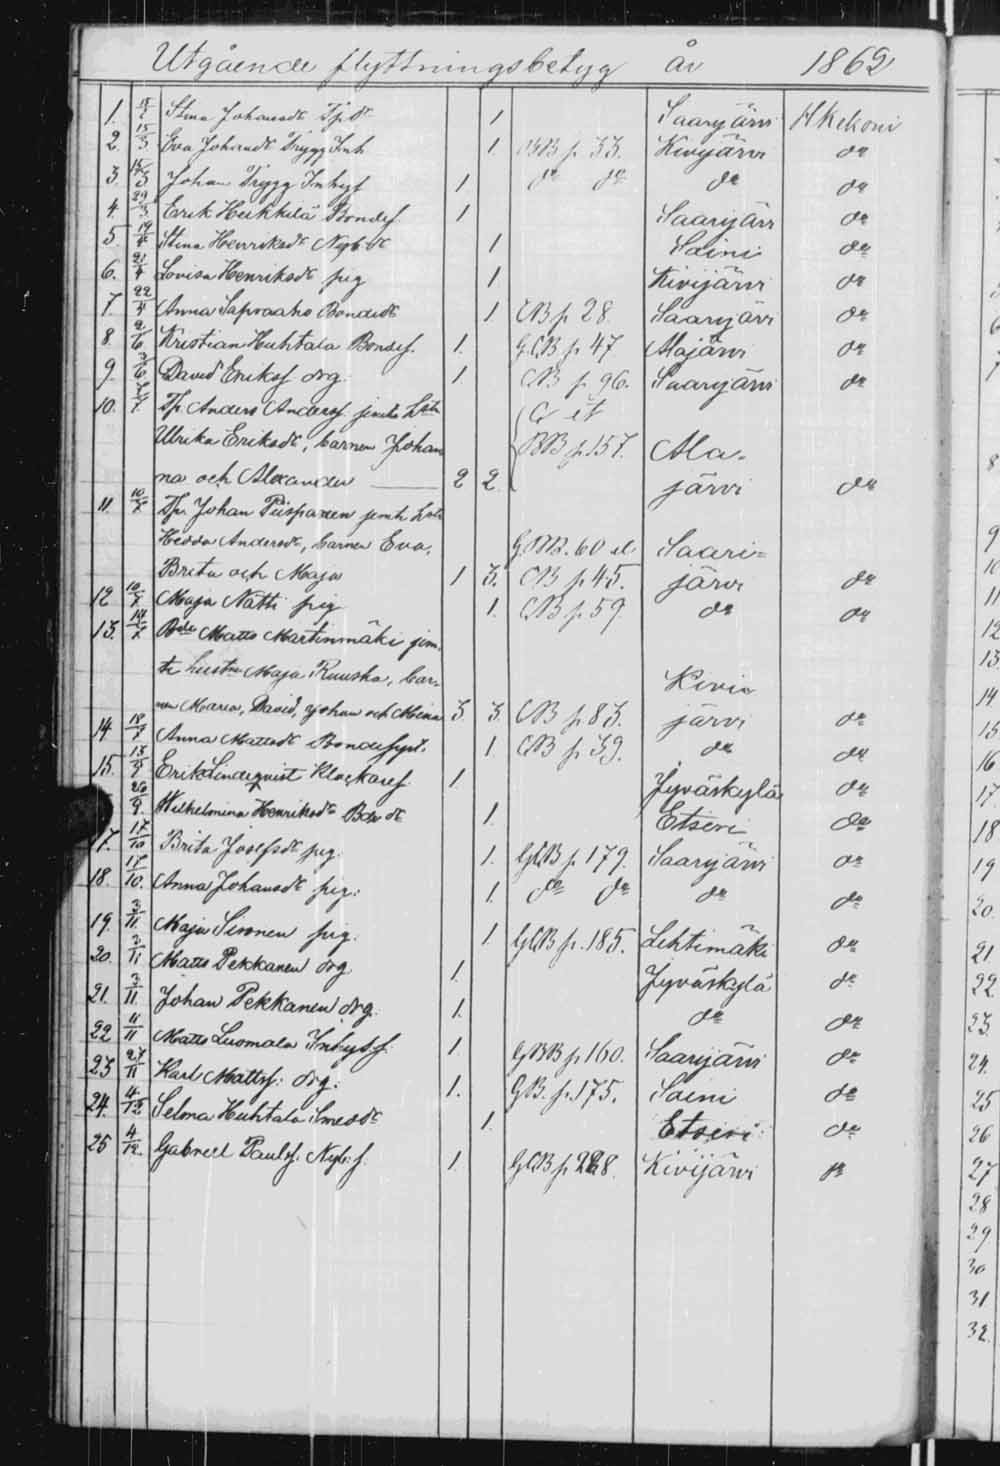 Utgående flyttningsbetyg år 1862
1. Stina Johansdr Tp.dr 1 Saarijärvi H Kekoni
2. 15/3 Eva Johansdr Trygg Inh. 1. BB p. 33. Kivijärvi do
3. 15/3 Johan Trygg Inhyf 1 do do do do
4. 29/3 Erik Heikkilä Bondes. 1 Saarijärv do
5. 19/4 Stina Henriksdr Nyb.dr 1 Saini do
6. 21/4 Lovisa Henriksdr pig 1 Kivijärvi do
7. 22/4 Anna Sapraaho Bondedr 1. CB p 28. Saarijärvi do
8. 2/6 Kristian Huhtala Bondes. 1. GCB p 47 Alajärvi do
9. 3/6 David Eriksf drg. 1. CB p 96. Saarijärvi do
10. 7/7 Tp. Anders Andersf. jemte hstr C et
Ulrika Eriksdr, barnen Johan BB p. 157. Ala-
na och Alexander 2 2 järvi do
11. 10/7 Tp. Johan Piispanen jemte hstr
Hedda Andersdr, barnen Eva, GBB. 60 et Saari=
Brita och Maja 1 3. CB p. 45. järvi do
12 10/7 Maja Nätti pig 1. CB p. 59. do do
13. 14/7 Bde Matts Martinmäki jem-
te hustru Maja Ruuska, bar- Kivi=
nen Maria, David, Johan och Mina 3 3. CB p. 83. järvi do
14 18/7 Anna Mattsdr Bonde 1. CB p. 39. do do
15. Erik Lindeqvist Klockaref 1 Jyväskylä do
26/9. Wilhelmina Henriksdr Bde dr 1. Etseri do
17. 17/10 Brita Josefsdr pig. 1. GCB p. 179. Saarijärvi do
18. 17/10. Anna Johansdr pig. 1. do do do do
19. 3/11 Maja Sironen pig. 1. GCB p. 185. Lehtimäki do
20. 3/11 Matts Pekkanen drg 1. Jyväskylä do
21. 3/11 Johan Pekkanen drg. 1. do do
22 11/11 Matts Luomala Inhysf. 1. GBB p. 160. Saarijärvi do
23 27/11 Karl Mattsf. drg. 1. GB. p. 175. Saini do
24. 4/12 Selma Huhtala Smeddr 1. Etseri do
25 4/12. Gabriel Paulsf. Nyb.f. 1. GCB p 228. Kivijärvi do